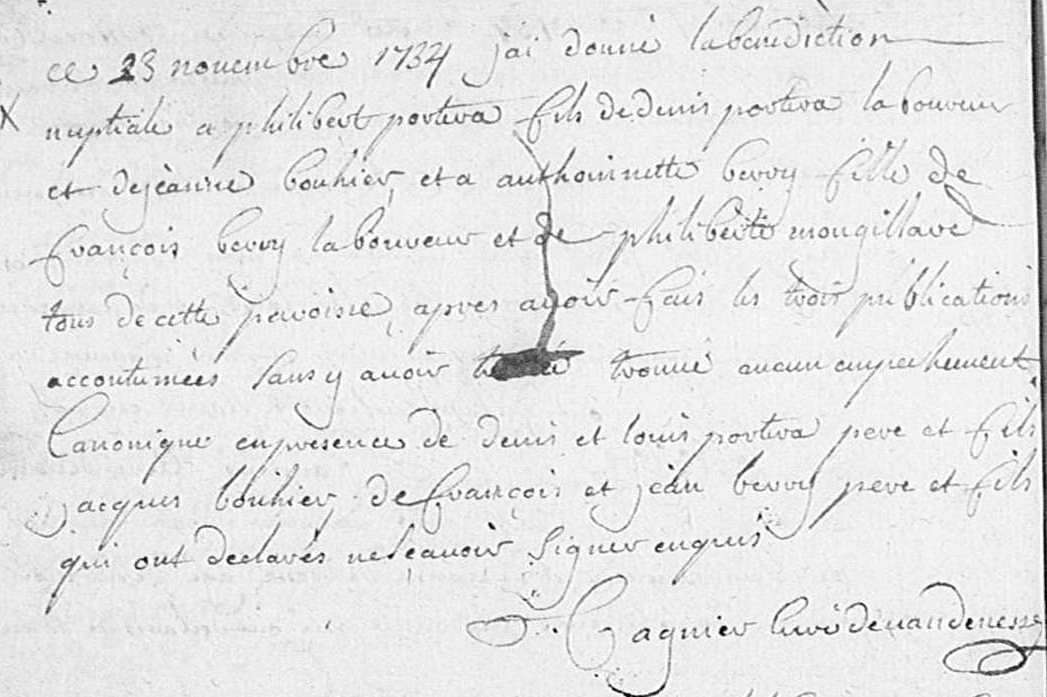 ce 23 novembre 1734 jai donné la benediction
nuptiale a philibert portera fils de denis portera laboureur
et de jeanne bouhier, et a anthoinette berry fille de
françois berry laboureur et de philiberte mongillard
tous de cette paroisse, apres avoir fais les trois publications
accoutumées sans y avoir trouvé aucun empechement
Canonique en presence de denis et louis portera pere et fils
jacques bouhier, de françois et jean berry pere et fils
qui ont declarés ne sçavoir signer enquis
Gagnier Curé de vandenesse